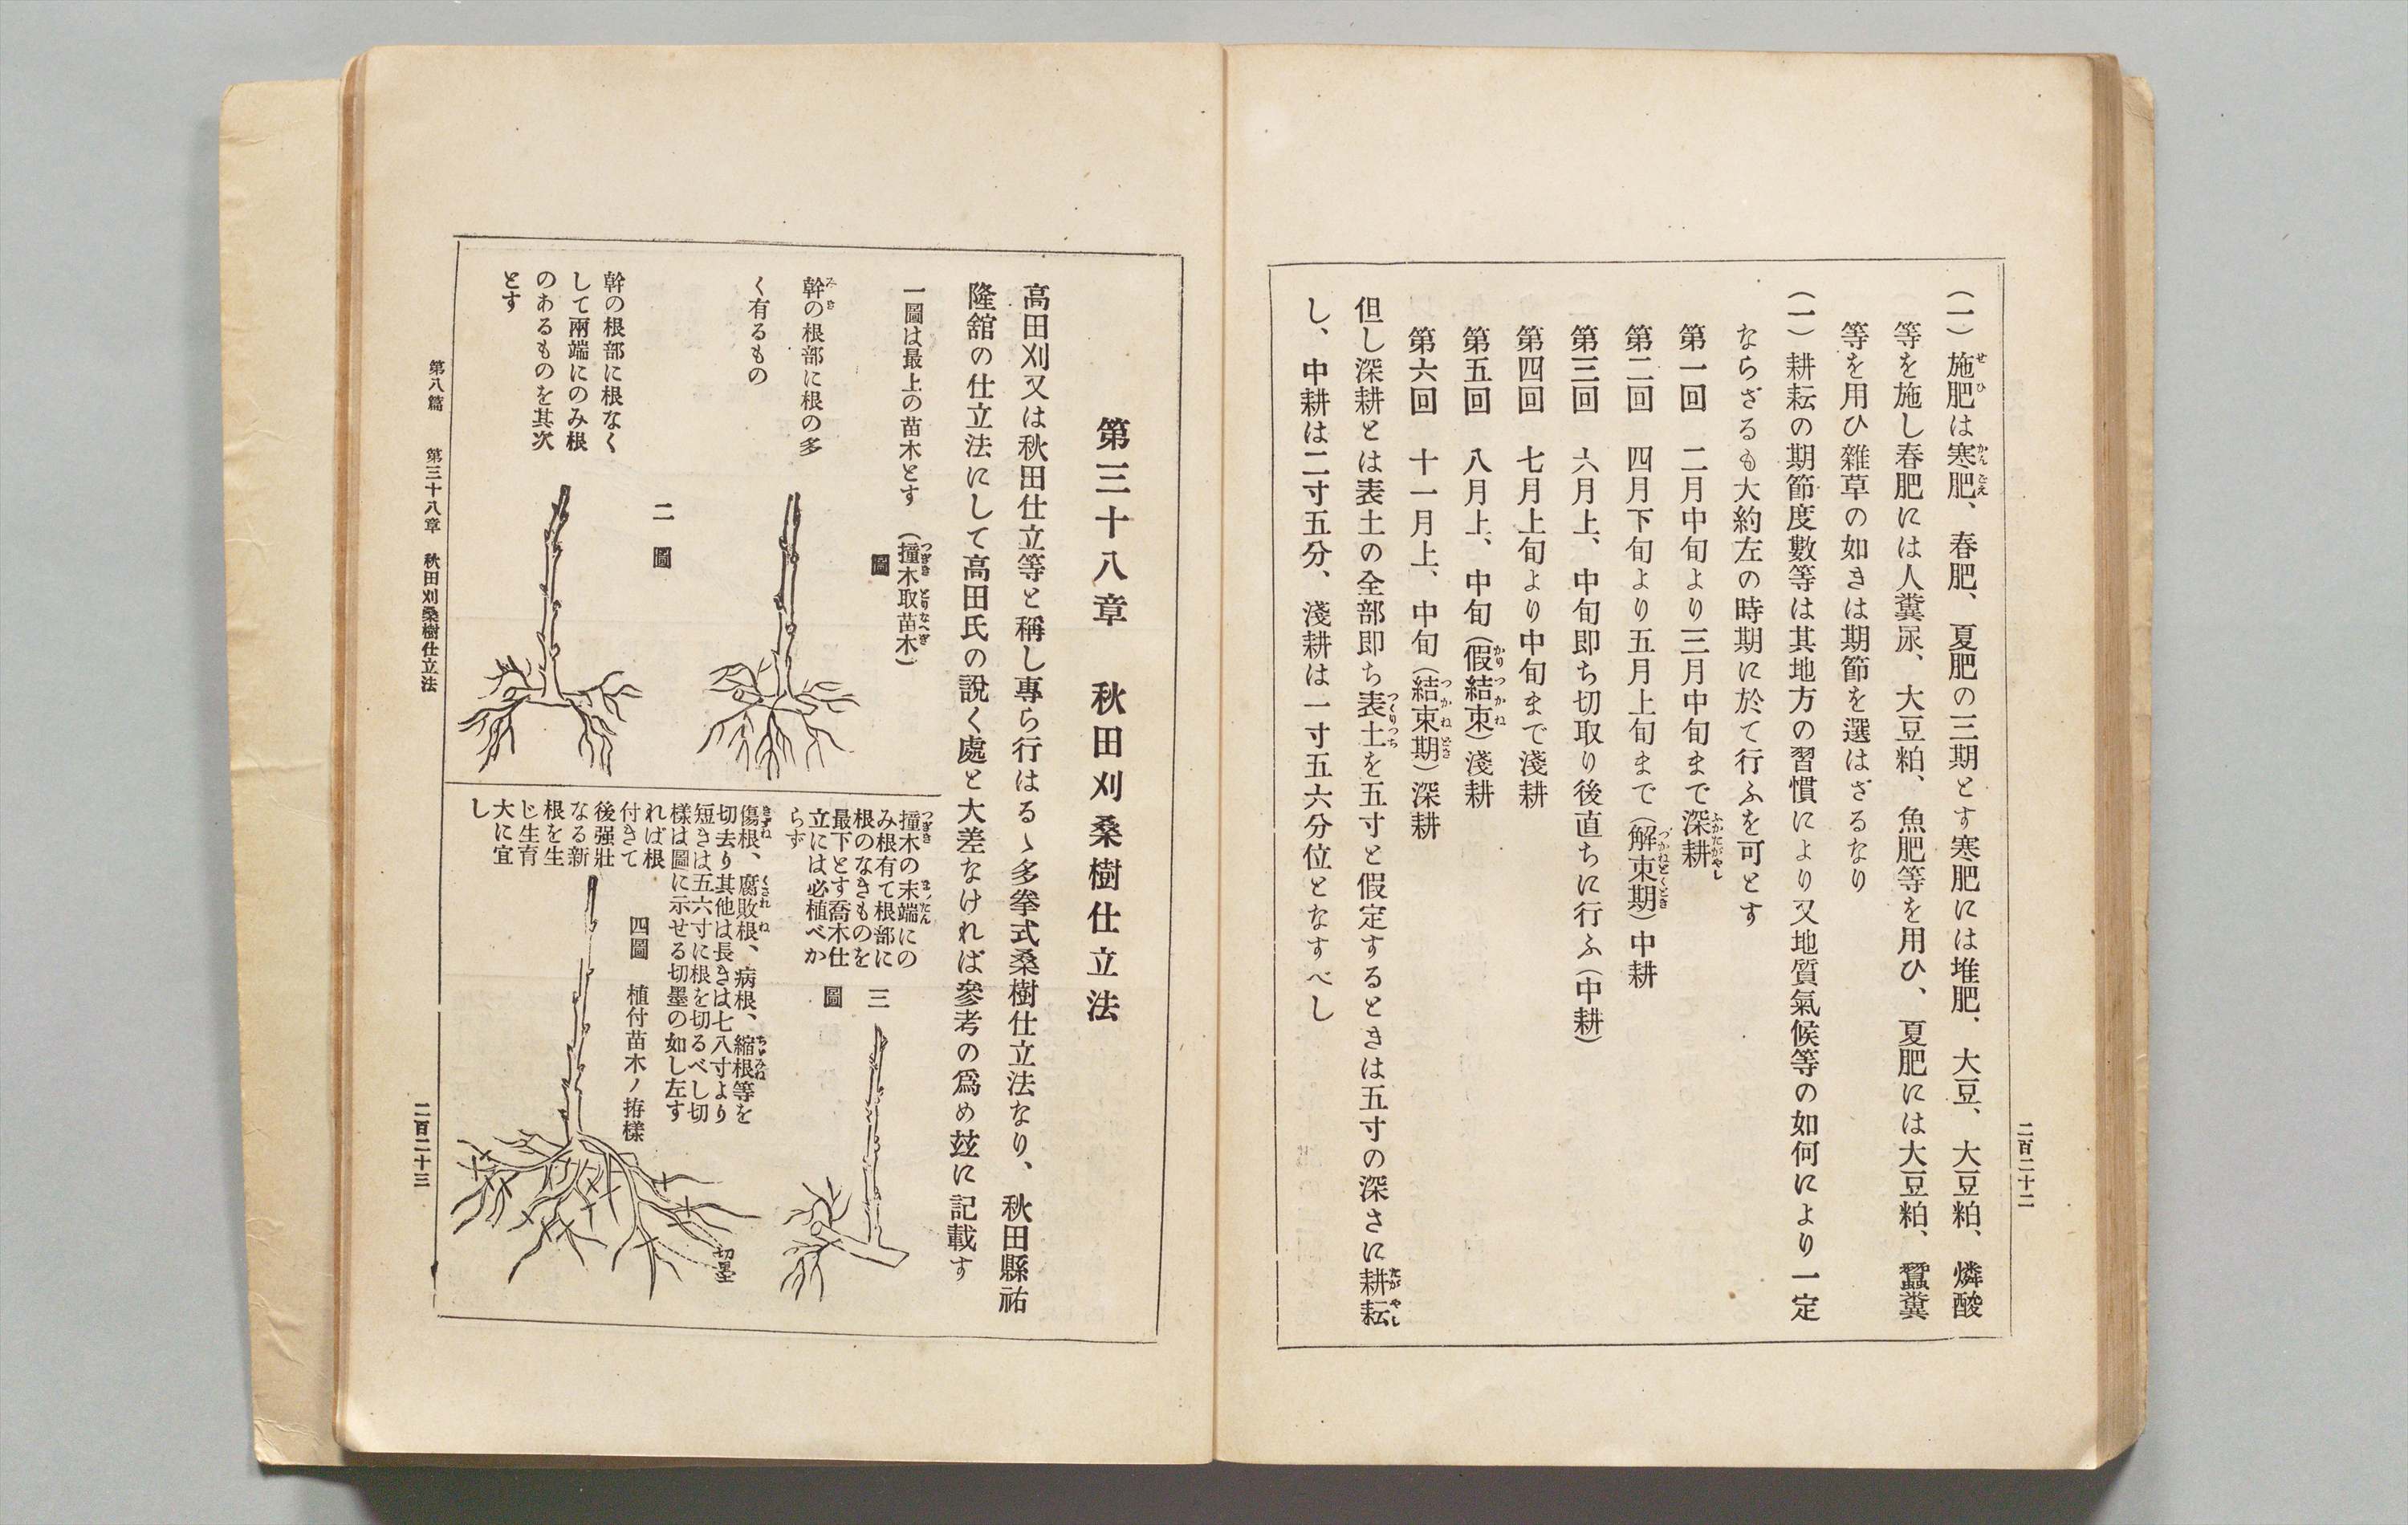 (一)施肥は寒肥、春肥、夏肥の三期とす寒肥には堆肥、大豆、大豆粕、燐酸
等を施し春肥には人糞尿、大豆粕、魚肥等を用ひ、夏肥には大豆粕、蠶糞
等を用ひ雜草の如きは期節を選はざるなり
(一)耕耘の期節度數等は其地方の習慣により又地質氣候等の如何により一定
ならざるも大約左の時期に於て行ふを可とす
第一回 二月中旬より三月中旬まで深耕
第二回 四月下旬より五月上旬まで(解束期)中耕
第三回 六月上、中旬即ち切取り後直ちに行ふ(中耕)
第四回 七月上旬より中旬まで淺耕
第五回 八月上、中旬(假結束)淺耕
第六回 十一月上、中旬(結束期)深耕
但し深耕とは表土の全部即ち表土を五寸と假定するときは五寸の深さに耕耘
し、中耕は二寸五分、淺耕は一寸五六分位となすべし
二百二十二
第三十八章 秋田刈桑樹仕立法
高田刈又は秋田仕立等と稱し專ら行はるゝ多拳式桑樹仕立法なり、秋田縣祐
隆舘の仕立法にして高田氏の說く處と大差なければ參考の爲め玆に記載す
一圖は最上の苗木とす(撞木取苗木)
圖
幹の根部に根の多
く有るもの
二圖
幹の根部に根なく
して兩端にのみ根
のあるものを其次
とす
撞木の末端にの
み根有て根部に
根のなきものを
最下とす喬木仕
立には必植べか
らず
三
圖
傷根、腐敗根、病根、縮根等を
切去り其他は長きは七八寸より
短きは五六寸に根を切るべし切
樣は圖に示せる切墨の如し左す
れば根
付きて
後强壯
なる新
根を生
じ生育
大に宜
し
四圖 植付苗木ノ拵樣
切墨
第八篇 第三十八章 秋田刈桑樹仕立法
二百二十三